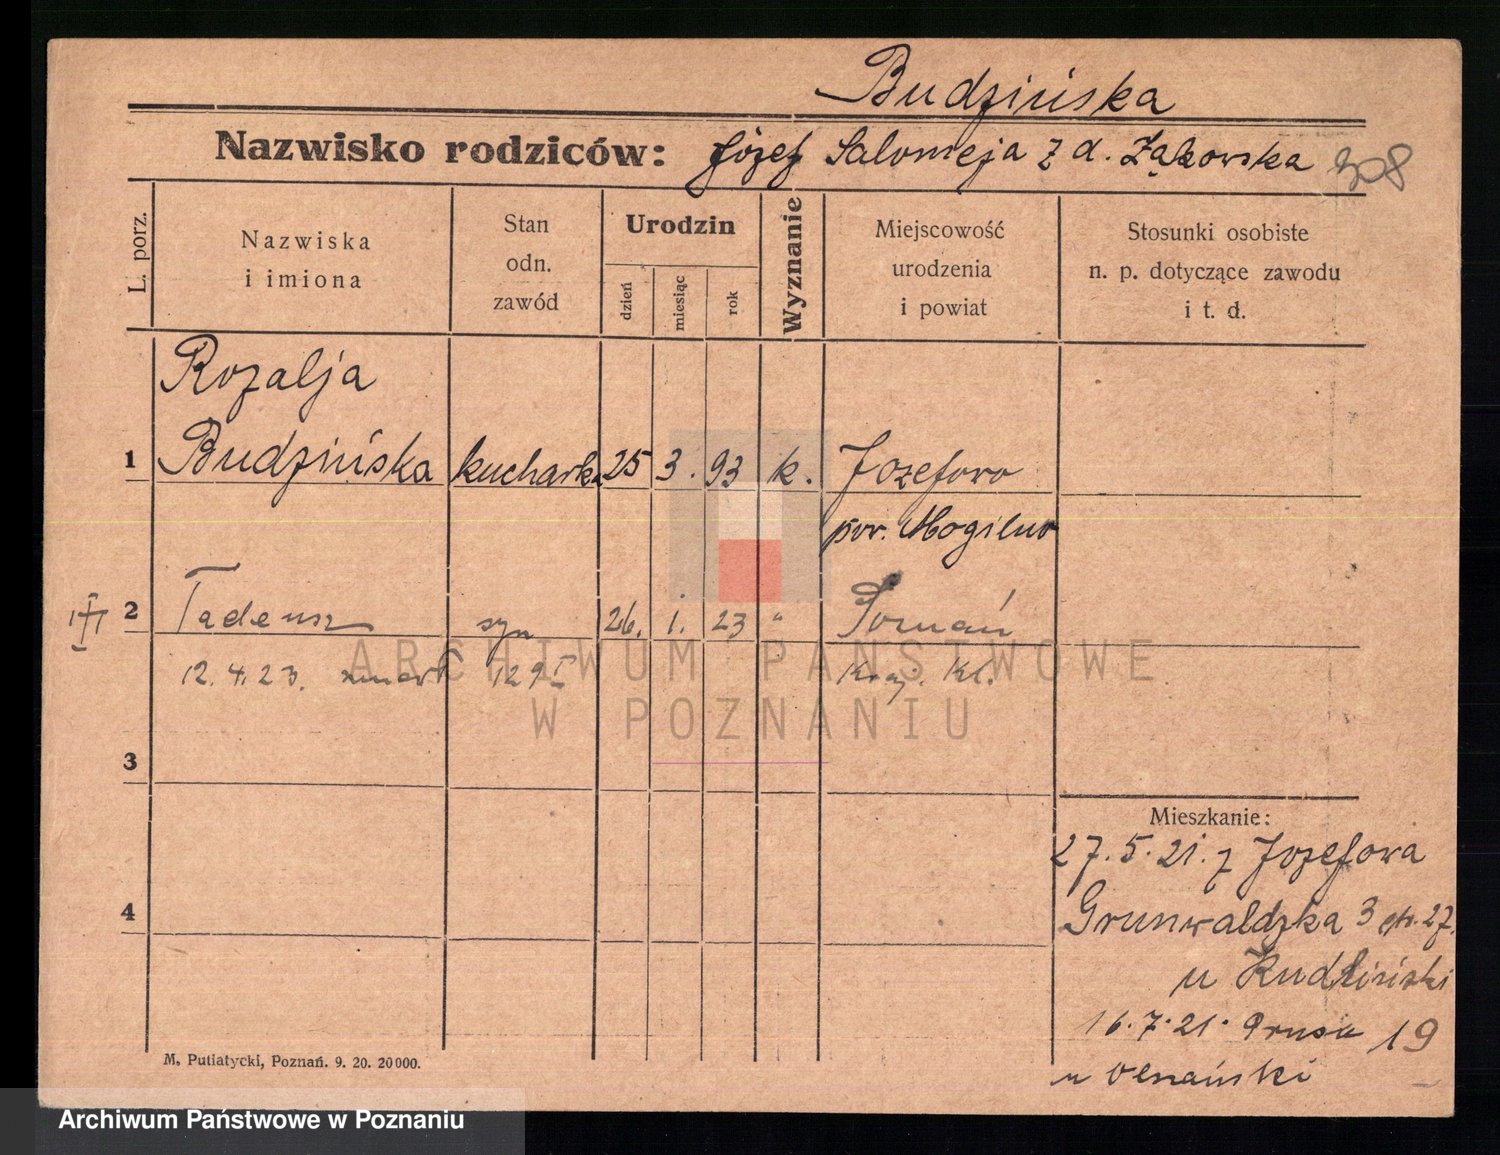 Budzińska
Nazwisko rodziców: Józef Salomeja z d. Żąkowska 308
L. porz.
Nazwiska
i imiona
Stan
odn.
zawód
Urodzin
dzień
miesiąc
rok
Wyznanie
Miejscowość
urodzenia
i powiat
Stosunki osobiste
n. p. dotyczące zawodu
i t. d.
Rozalja
1 Budzińska kucharka 25 3. 93 k. Jozefowo
pow. Mogilno
2 Tadeusz syn 26. 1. 23 " Poznań
12.4.23. zmarł 129 I
3
Mieszkanie:
27.5.21. z Jozefowa
4
Grunwaldzka 3 ptr. 27.
u
16.7.21. Prusa 19
u
M. Putiatycki, Poznań. 9. 20. 20000.
ARCHIWUM PAŃSTWOWE
W POZNANIU
Archiwum Państwowe w Poznaniu